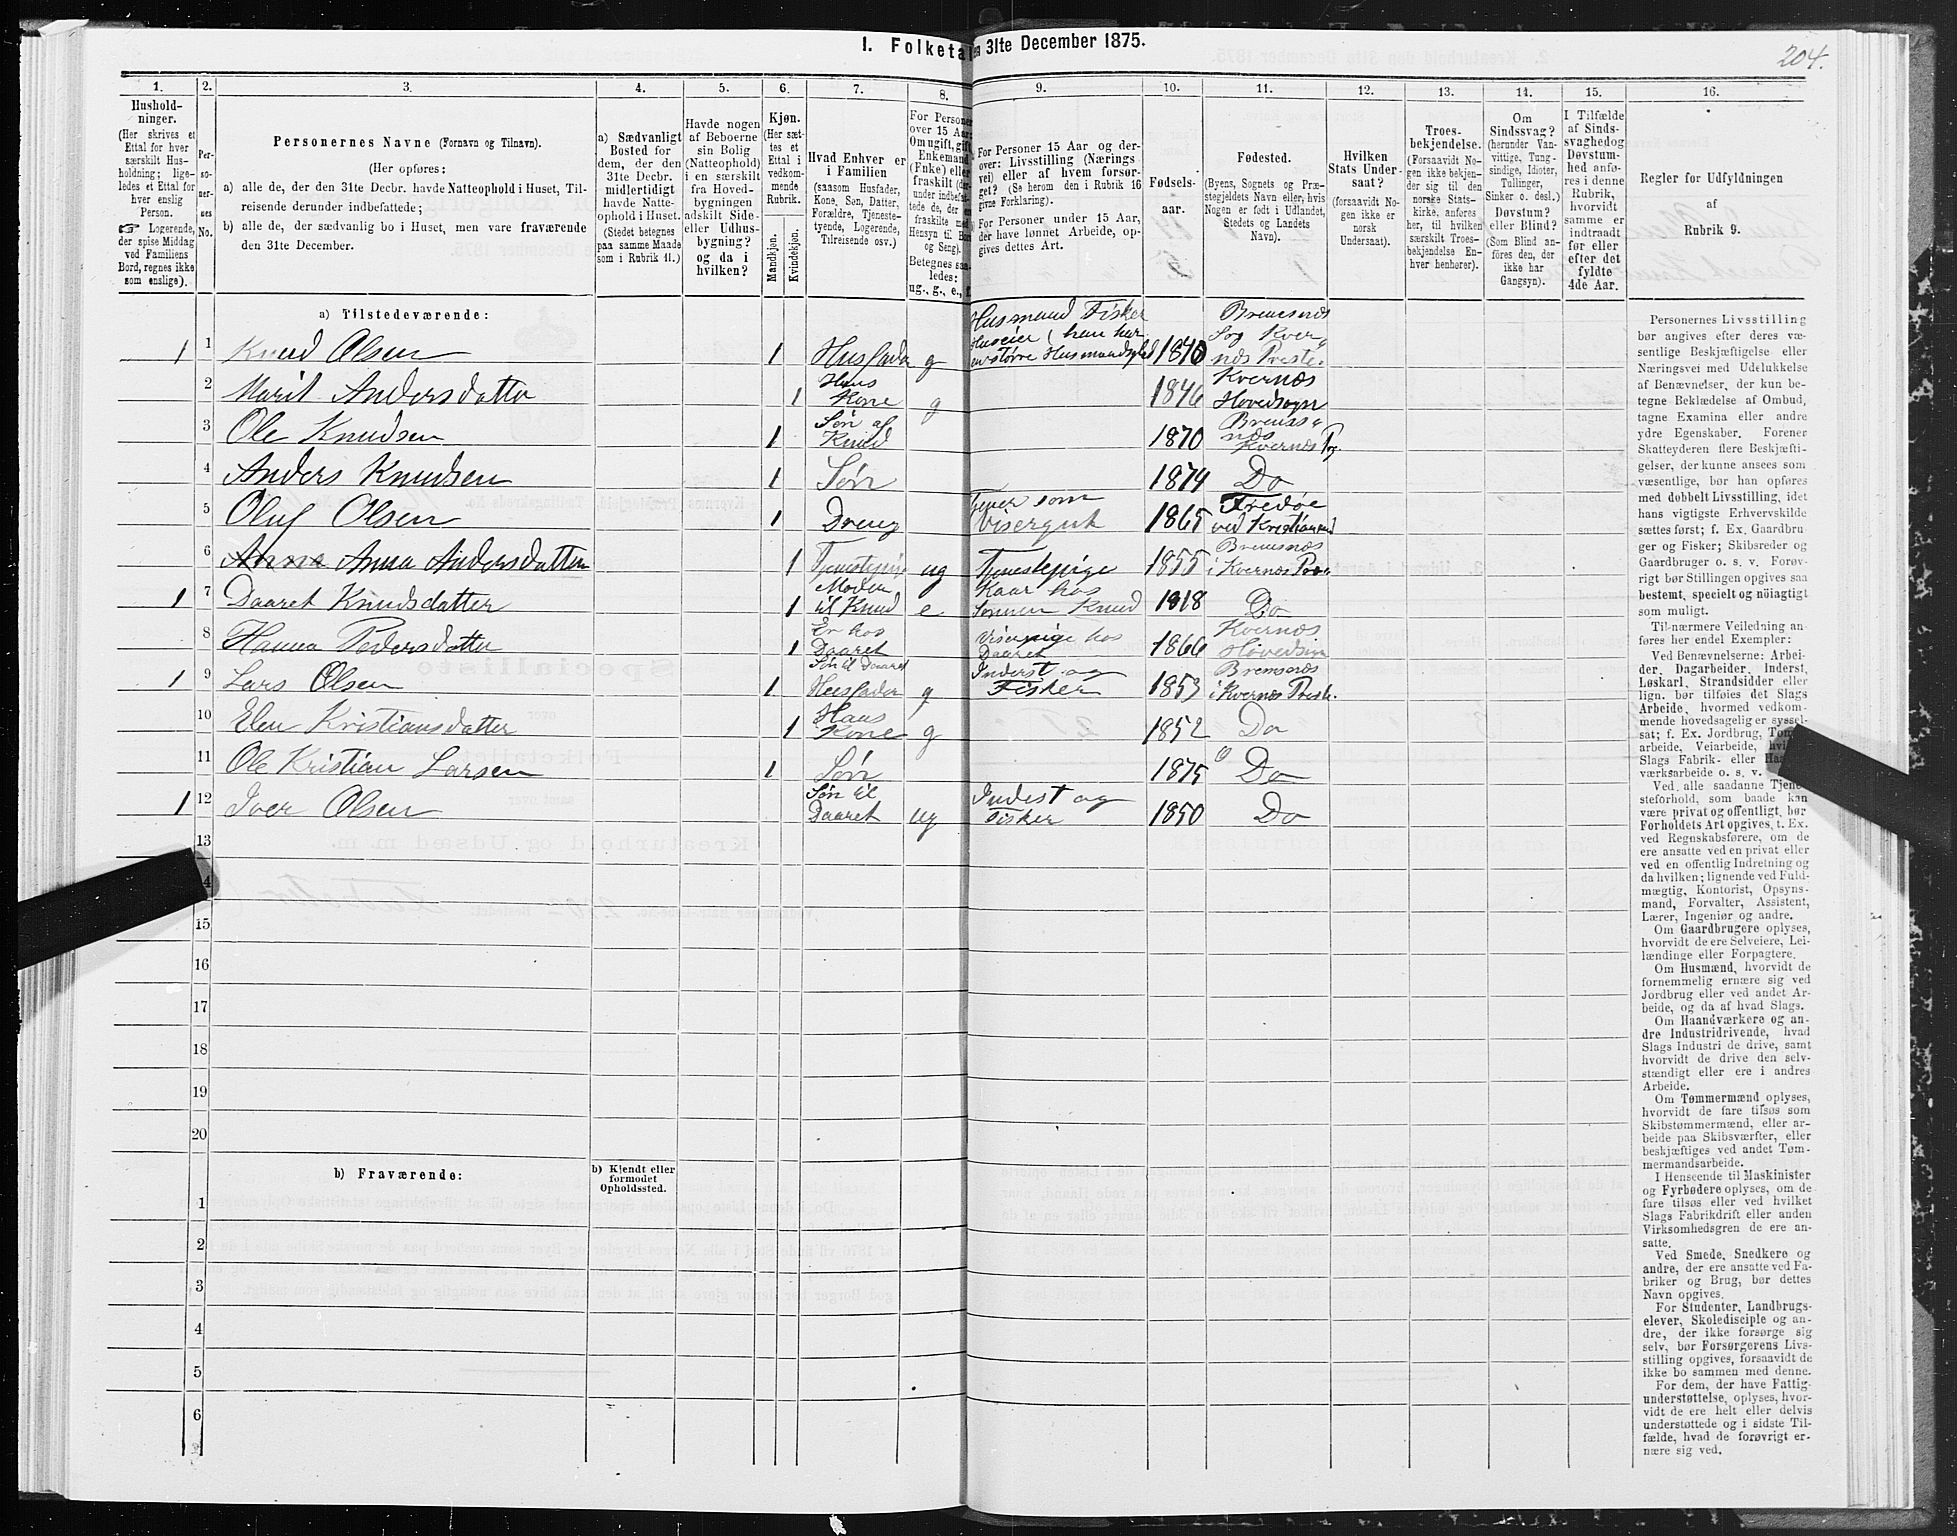 1. Folketal
den 31te December 1875.
204.
1.
2.
3.
4.
5.
6.
7.
8.
9.
10.
11.
12.
13.
14.
15.
16.
Hushold-
ninger.
(Her skrives et
Ettal for hver
særskilt Hus-
holdning; lige-
ledes et Ettal for
hver enslig
Person.
☞ Logerende,
der spise Middag
ved Familiens
Bord, regnes ikke
som enslige).
Per-
so-
ner-
nes
No.
Personernes Navne (Fornavn og Tilnavn).
(Her opføres:
a) alle de, der den 31te Decbr. havde Natteophold i Huset, Til-
reisende derunder indbefattede;
b) alle de, der sædvanlig bo i Huset, men vare fraværende
den 31te December.
a) Sædvanligt
Bosted for
dem, der den
31te Decbr.
midlertidigt
havde Natte-
ophold i Huset.
(Stedet betegnes
paa samme Maade
som i Rubrik 11.)
Havde nogen
af Beboerne
sin Bolig
(Natteophold)
i en særskilt
fra Hoved-
bygningen
adskilt Side-
eller Udhus-
bygning?
og da i
hvilken?
Kjøn.
(Her sæt-
tes et
Ettal i
vedkom-
mende
Rubrik.
Mandkjøn.
Kvindekjøn.
Hvad Enhver er
i Familien
(saasom Husfader,
Kone, Søn, Datter,
Forældre, Tjeneste-
tyende, Logerende,
Tilreisende osv.)
For Personer
over 15 Aar:
Om ugift, gift,
Enkemand
(Enke) eller
fraskilt
Betegnes saa-
ledes:
ug., g., e., f.
For Personer 15 Aar og der-
over: Livsstilling (Nærings-
vei) eller af hvem forsør-
get? (Se herom den i Rubrik 16
givne Forklaring).
For Personer under 15 Aar,
der have lønnet Arbeide, op-
gives dettes Art.
Fødsels-
aar.
Fødested.
(Byens, Sognets og Præ-
stegjeldets Navn eller, hvis
Nogen er født i Udlandet,
Stedets og Landets
Navn).
Hvilken
Stats Under-
saat?
(forsaavidt No-
gen ikke er
norsk
Undersaat).
Troes-
bekjendelse.
(Forsaavidt No-
gen ikke bekjen-
der sig til den
norske Stats-
kirke, anføres
her, til hvilken
særskilt Troes-
bekjendelse En-
hver henhører).
Om
Sindssvag?
(herunder Van-
vittige, Tung-
sindige, Idioter,
Tullinger,
Sinker o. desl.)
Døvstum?
eller Blind?
(Som Blind an-
føres den, der
ikke har
Gangsyn).
I Tilfælde
af Sinds-
svaghed og
Døvstum-
hed anfø-
res i denne
Rubrik,
hvorvidt
samme er
indtraadt
før eller
efter det
fyldte
4de Aar.
Regler for Udfyldningen
af
Rubrik 9.
a) Tilstedeværende:
1 1 Knud Olsen 1 Husfader g Husmand Fisker Huseier (han har en større Husmandsplds 1840 Bremsnæs Sog Kver næs Preste.
2 Marit Andersdatter 1 Hans Kone g 1846 Kvernæs Hovedsogn
3 Ole Knudsen 1 Søn af Knud 1870 Bremss næs Kvernæs Pg.
4 Anders Knudsen 1 Søn 1874 Do
5 Oluf Olsen 1 Dreng Tjener som Visergut 1865 Fredøe ved Kristiansund
6 Anna Anna Andersdatter 1 Tjenestepige ug Tjenestepige 1855 Bremsnæs i Kvernæs Præ
1 7 Daaret Knudsdatter 1 Moder til Knud e Kaar hos Sønnen Knud 1818 Do
8 Hanna Pedersdatter 1 Er hos Daaret Viserpige hos Daaret 1866 Kvernæs Hovedsogn
1 9 Lars Olsen 1 Søn til Daaret Husfader g Inderst og Fisker 1853 Bremsnæs i Kvernæs Prest.
10 Elen Kristiansdatter 1 Hans Kone g 1852 Do
11 Ole Kristian Larsen 1 Søn 1875 Do
1 12 Iver Olsen Søn til Daaret ug Indest og Fisker 1850 Do
13
15
16
17
18
19
20
b) Fraværende:
b) Kjendt eller
formodet
Opholdssted.
1
2
3
4
5
6
Personernes Livsstilling
bør angives efter deres væ-
sentlige Beskjæftigelse eller
Næringsvei med Udelukkelse
af Benævnelser, der kun be-
tegne Beklædelse af Ombud,
tagne Examina eller andre
ydre Egenskaber. Forener
Skatteyderen flere Beskjæfti-
gelser, der kunne ansees som
væsentlige, bør han opføres
med dobbelt Livsstilling, idet
hans vigtigste Erhvervskilde
sættes først; f. Ex. Gaardbru-
ger og Fisker; Skibsreder og
Gaardbruger o. s. v. Forøv-
rigt bør Stillingen opgives saa
bestemt, specielt og nøiagtigt
som muligt.
Til nærmere Veiledning an-
føres her endel Exempler:
Ved Benævnelserne: Arbei-
der, Dagarbeider, Inderst,
Løskarl, Strandsidder eller
lign. bør tilføies det Slags
Arbeide, hvormed vedkom-
mende hovedsagelig er syssel-
sat; f. Ex. Jordbrug, Tømmer-
arbeide, Veiarbeide, hvilket
Slags Fabrik- eller Haand-
værksarbeide o. s. v.
Ved alle saadanne Tjene-
steforhold, som baade kan
være privat og offentligt, bør
Forholdets Art opgives, t. Ex.
ved Regnskabsførere, om de
ere ansatte ved en privat eller
ved en offentlig Indretning og
da hvilken; lignende ved Fuld-
mægtig, Kontorist, Opsyns-
mand, Forvalter, Assistent,
Lærer, Ingeniør og andre.
Om Gaardbrugere oplyses,
hvorvidt de ere Selveiere, Lei-
lændinge eller Forpagtere.
Om Husmænd, hvorvidt de
fornemmelig ernære sig ved
Jordbrug eller ved andet Ar-
beide, og da af hvad Slags.
Om Haandværkere og an-
dre Industridrivende, hvad
Slags Industri de drive, samt
hvorvidt de drive den selv-
stændigt eller ere i andres
Arbeide.
Om Tømmermænd oplyses,
hvorvidt de fare tilsøs som
Skibstømmermænd, eller ar-
beide paa Skibsværfter, eller
beskjæftiges ved andet Tøm-
mermandsarbeide.
I Henseende til Maskinister
og Fyrbødere oplyses, om de
fare tilsøs eller ved hvilket
Slags Fabrikdrift eller anden
Virksomhedsgren de ere an-
satte.
Ved Smede, Snedkere og
andre, der ere ansatte ved Fa-
briker og Brug, bør dettes
Navn opgives.
For Studenter, Landbrugs-
elever, Skoledisciple og an-
dre, der ikke forsørge sig
selv, bør Forsørgerens Livs-
stilling opgives, forsaavidt de
ikke bo sammen med denne.
For dem, der have Fattig-
understøttelse, oplyses, hvor-
vidt de ere helt eller delvis
understøttede og i sidste Til-
fælde, hvad de forøvrigt er-
nære sig ved.